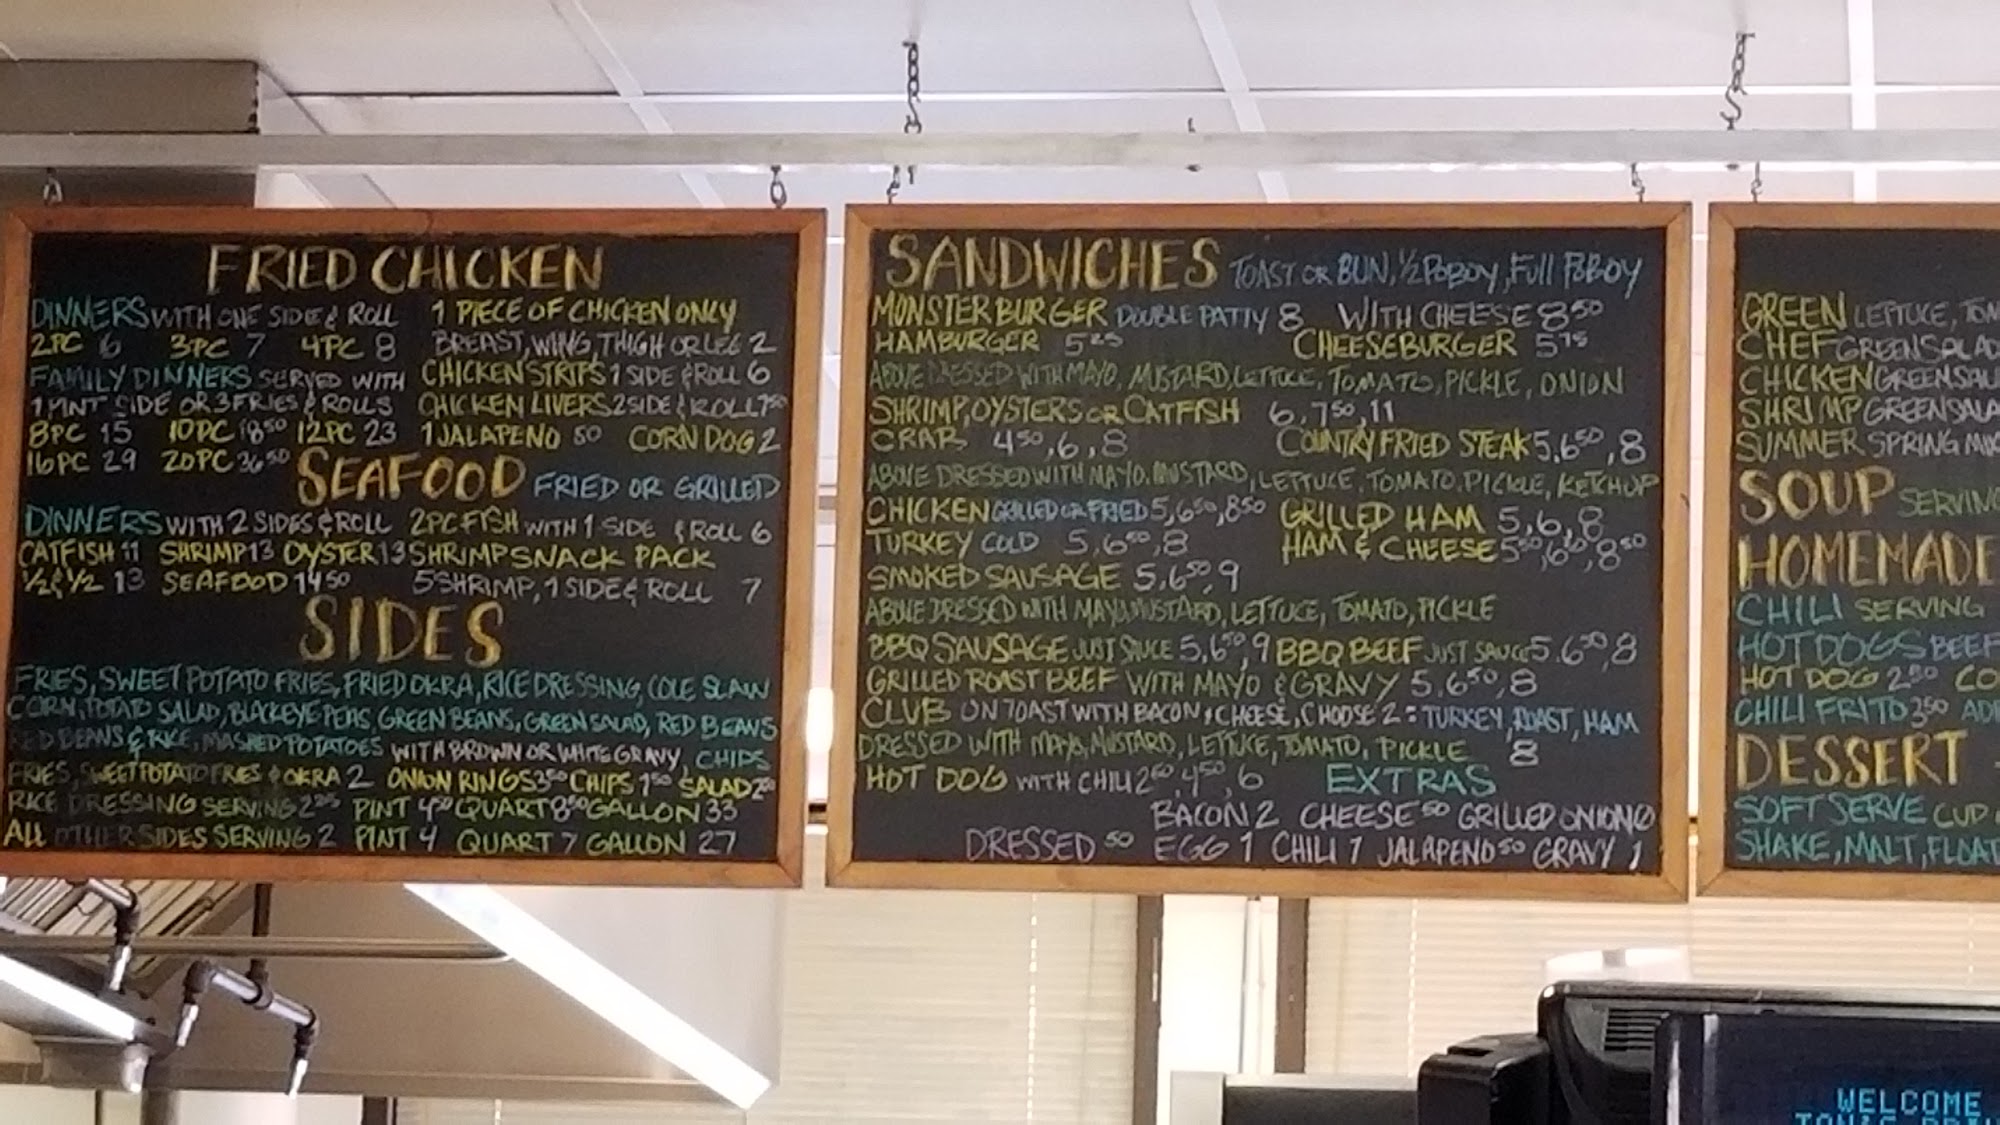 FRIED CHICKEN
DINNERS WITH ONE SIDE & ROLL
2PC 6 3PC 7 4PC 8
FAMILY DINNERS SERVED WITH
1 PINT SIDE OR 3 FRIES & ROLLS
8PC 15 10PC 18⁵⁰ 12PC 23
16PC 29 20PC 36⁵⁰
1 PIECE OF CHICKEN ONLY
BREAST, WING, THIGH OR LEG 2
CHICKEN STRIPS 1 SIDE & ROLL 6
CHICKEN LIVERS 2 SIDE & ROLL 7⁵⁰
1 JALAPENO 50 CORN DOG 2
SEAFOOD FRIED OR GRILLED
DINNERS WITH 2 SIDES & ROLL
CATFISH 11 SHRIMP 13 OYSTER 13
½ & ½ 13 SEAFOOD 14⁵⁰
2PC FISH WITH 1 SIDE & ROLL 6
SHRIMP SNACK PACK
5 SHRIMP, 1 SIDE & ROLL 7
SIDES
FRIES, SWEET POTATO FRIES, FRIED OKRA, RICE DRESSING, COLE SLAW
CORN, POTATO SALAD, BLACKEYE PEAS GREEN BEANS, GREEN SALAD, RED BEANS
RED BEANS & RICE, MASHED POTATOES WITH BROWN OR WHITE GRAVY, CHIPS
FRIES, SWEET POTATO FRIES & OKRA 2 ONION RINGS 3⁵⁰ CHIPS 1⁵⁰ SALAD
RICE DRESSING SERVING PINT 4⁵⁰ QUART 8⁵⁰ GALLON 33
ALL OTHER SIDES SERVING 2 PINT 4 QUART 7 GALLON 27
SANDWICHES TOAST OR BUN, ½ POBOY, FULL POBOY
MONSTER BURGER DOUBLE PATTY 8 WITH CHEESE 8⁵⁰
HAMBURGER 5²⁵ CHEESEBURGER 5⁷⁵
ABOVE DRESSED WITH MAYO, MUSTARD, LETTUCE, TOMATO, PICKLE, ONION
SHRIMP, OYSTERS OR CATFISH 6, 7⁵⁰, 11
CRAB 4⁵⁰, 6, 8 COUNTRY FRIED STEAK 5, 6⁵⁰, 8
ABOVE DRESSED WITH MAYO, MUSTARD, LETTUCE, TOMATO, PICKLE, KETCHUP
CHICKEN GRILLED OR FRIED 5, 6⁵⁰, 8⁵⁰ GRILLED HAM 5, 6, 8
TURKEY COLD 5, 6⁵⁰, 8 HAM & CHEESE 5⁵⁰, 6⁵⁰, 8⁵⁰
SMOKED SAUSAGE 5, 6⁵⁰, 9
ABOVE DRESSED WITH MAYO, MUSTARD, LETTUCE, TOMATO, PICKLE
BBQ SAUSAGE JUST SAUCE 5, 6⁵⁰, 9 BBQ BEEF JUST SAUCE 5, 6⁵⁰, 8
GRILLED ROAST BEEF WITH MAYO & GRAVY 5, 6⁵⁰, 8
CLUB ON TOAST WITH BACON & CHEESE, CHOOSE 2: TURKEY, ROAST, HAM
DRESSED WITH MAYO, MUSTARD, LETTUCE, TOMATO, PICKLE 8
HOT DOG WITH CHILI 2⁵⁰, 4⁵⁰, 6 EXTRAS
BACON 2 CHEESE ⁵⁰ GRILLED ONION
DRESSED ⁵⁰ EGG 1 CHILI 1 JALAPENO ⁵⁰ GRAVY 1
GREEN LETTUCE, TOM
CHEF GREEN SALAD
CHICKEN GREEN SAL
SHRIMP GREEN SALA
SUMMER SPRING MIX
SOUP SERVING
HOMEMADE
CHILI SERVING
HOT DOGS BEEF
HOT DOG 2⁵⁰ CO
CHILI FRITO 3⁵⁰ ADD
DESSERT
SOFT SERVE CUP
SHAKE, MALT, FLOAT
WELCOME